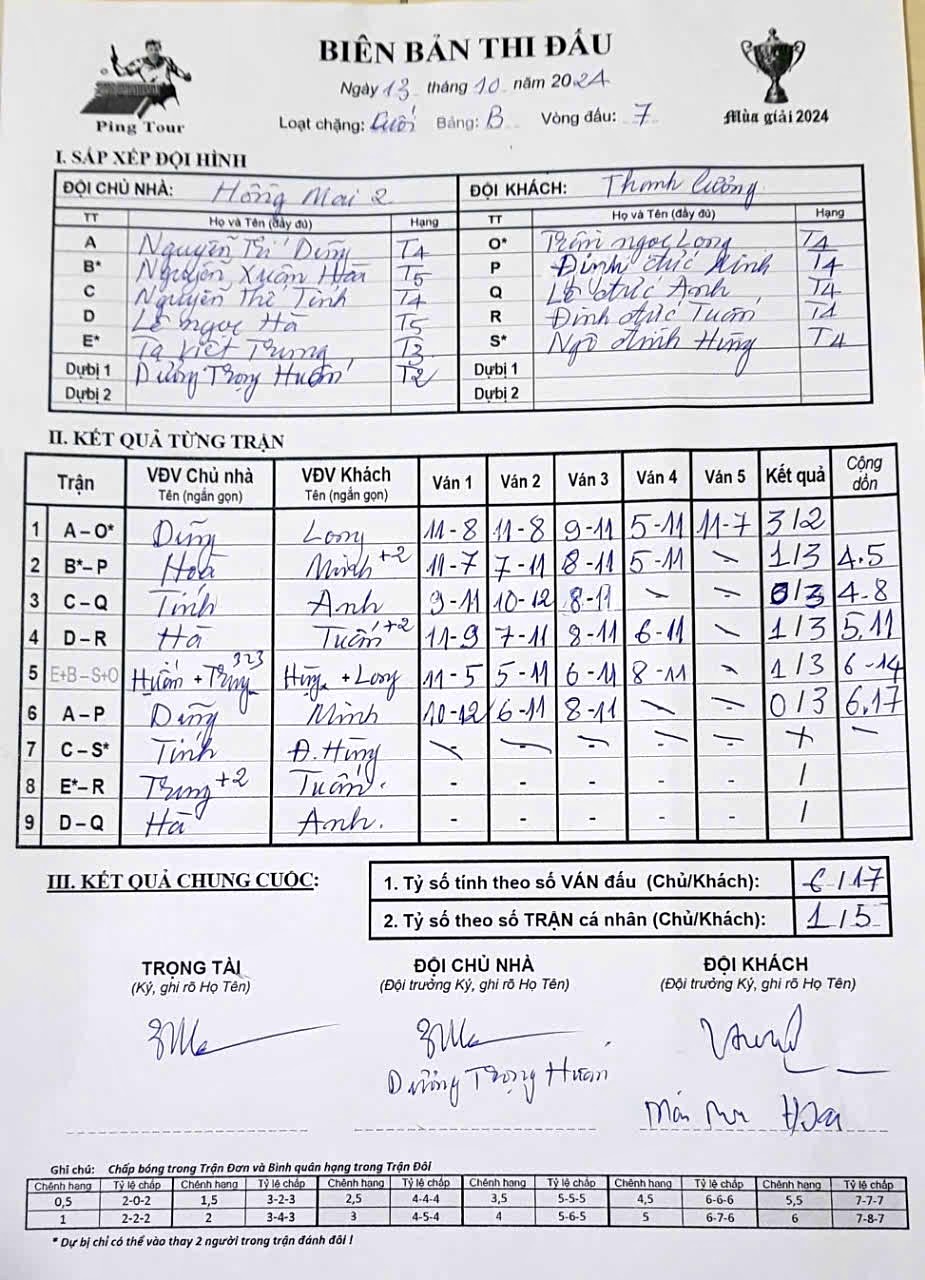 BIÊN BẢN THI ĐẤU
Ngày 13 tháng 10 năm 2024
Ping Tour
Loạt chặng: Cuối Bảng: B Vòng đấu: 7
Mùa giải 2024
I. SẮP XẾP ĐỘI HÌNH
ĐỘI CHỦ NHÀ: Hồng Mai 2 ĐỘI KHÁCH: Thanh Cường
TT Họ và Tên (đầy đủ) Hạng TT Họ và Tên (đầy đủ) Hạng
A Nguyễn Trí Dũng T4 O* Trần Ngọc Long T4
B* Nguyễn Xuân Hoà T5 P Đinh Đức Minh T4
C Nguyễn Thế Tính T4 Q Lê Đức Anh T4
D Lê Ngọc Hà T5 R Đinh Đức Tuấn T4
E* Tạ Việt Trung T3 S* Ngô Đình Hùng T4
Dự bị 1 Dương Trọng Huấn T2 Dự bị 1
Dự bị 2 Dự bị 2
II. KẾT QUẢ TỪNG TRẬN
Trận VĐV Chủ nhà Tên (ngắn gọn) VĐV Khách Tên (ngắn gọn) Ván 1 Ván 2 Ván 3 Ván 4 Ván 5 Kết quả Cộng dồn
1 A – O* Dũng Long 11-8 11-8 9-11 5-11 11-7 3/2
2 B* – P Hoà Minh +2 11-7 7-11 8-11 5-11 - 1/3 4.5
3 C – Q Tính Anh 9-11 10-12 8-11 - - 0/3 4-8
4 D – R Hà Tuấn +2 11-9 7-11 8-11 6-11 - 1/3 5.11
5 E+B – S+O Huấn + Trung 323 Hùng + Long 11-5 5-11 6-11 8-11 - 1/3 6-14
6 A – P Dũng Minh 10-12 6-11 8-11 - - 0/3 6.17
7 C – S* Tính Đ. Hùng - - - - - / -
8 E* – R Trung +2 Tuấn. - - - - - /
9 D – Q Hà Anh. - - - - - /
III. KẾT QUẢ CHUNG CUỘC:
1. Tỷ số tính theo số VÁN đấu (Chủ/Khách): 6/17
2. Tỷ số theo số TRẬN cá nhân (Chủ/Khách): 1/5
TRỌNG TÀI ĐỘI CHỦ NHÀ ĐỘI KHÁCH
(Ký, ghi rõ Họ Tên) (Đội trưởng Ký, ghi rõ Họ Tên) (Đội trưởng Ký, ghi rõ Họ Tên)
Dương Trọng Huấn
Ghi chú: Chấp bóng trong Trận Đơn và Bình quân hạng trong Trận Đôi
Chênh hạng Tỷ lệ chấp Chênh hạng Tỷ lệ chấp Chênh hạng Tỷ lệ chấp Chênh hạng Tỷ lệ chấp Chênh hạng Tỷ lệ chấp Chênh hạng Tỷ lệ chấp
0,5 2-0-2 1,5 3-2-3 2,5 4-4-4 3,5 5-5-5 4,5 6-6-6 5,5 7-7-7
1 2-2-2 2 3-4-3 3 4-5-4 4 5-6-5 5 6-7-6 6 7-8-7
* Dự bị chỉ có thể vào thay 2 người trong trận đánh đôi !